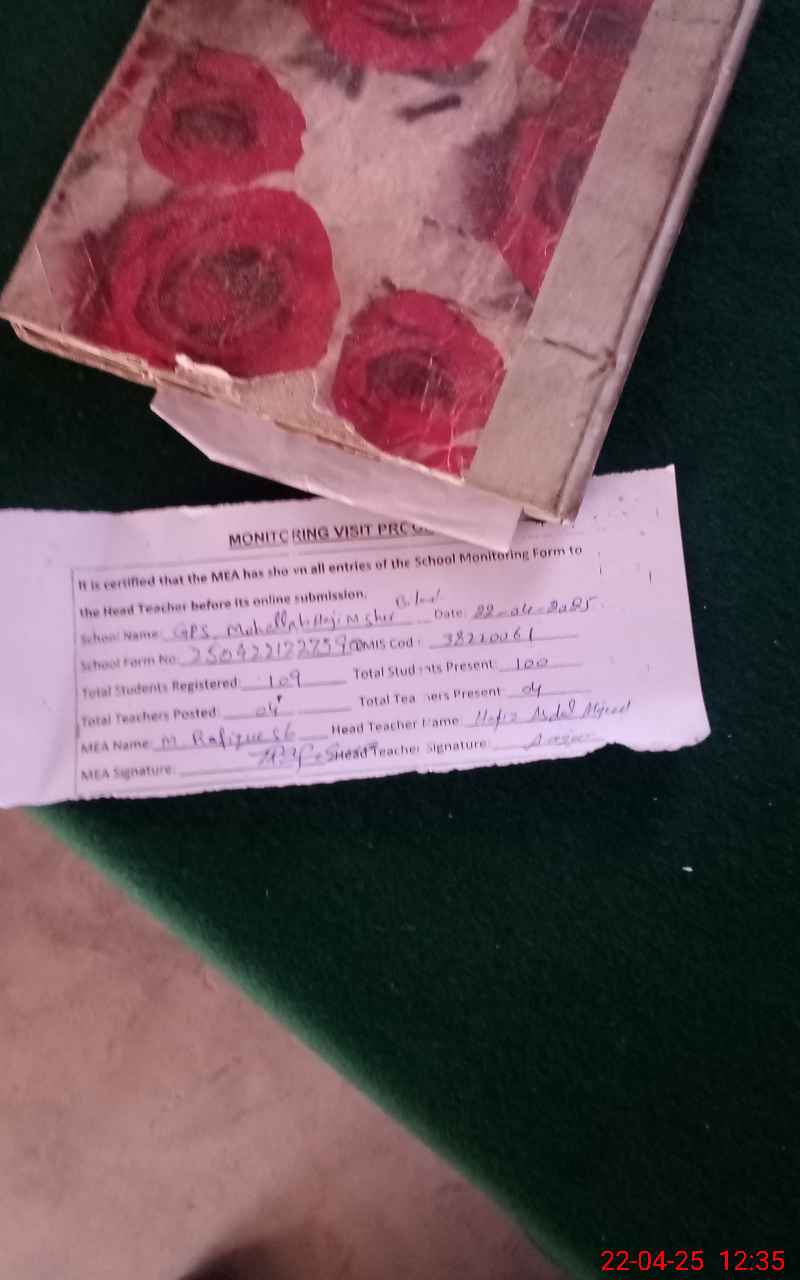 MONITORING VISIT PRO
It is certified that the MEA has shown all entries of the School Monitoring Form to
the Head Teacher before its online submission.
School Name: GPS Mohallah Haji M Sher Date: 22-04-2025
School Form No: EMIS Code: 38220061
Total Students Registered: 109 Total Students Present: 100
Total Teachers Posted: 04 Total Teachers Present: 04
MEA Name: M. Rafique 56 Head Teacher Name: Hafiz Abdul Majeed
MEA Signature: Head Teacher Signature:
22-04-25 12:35